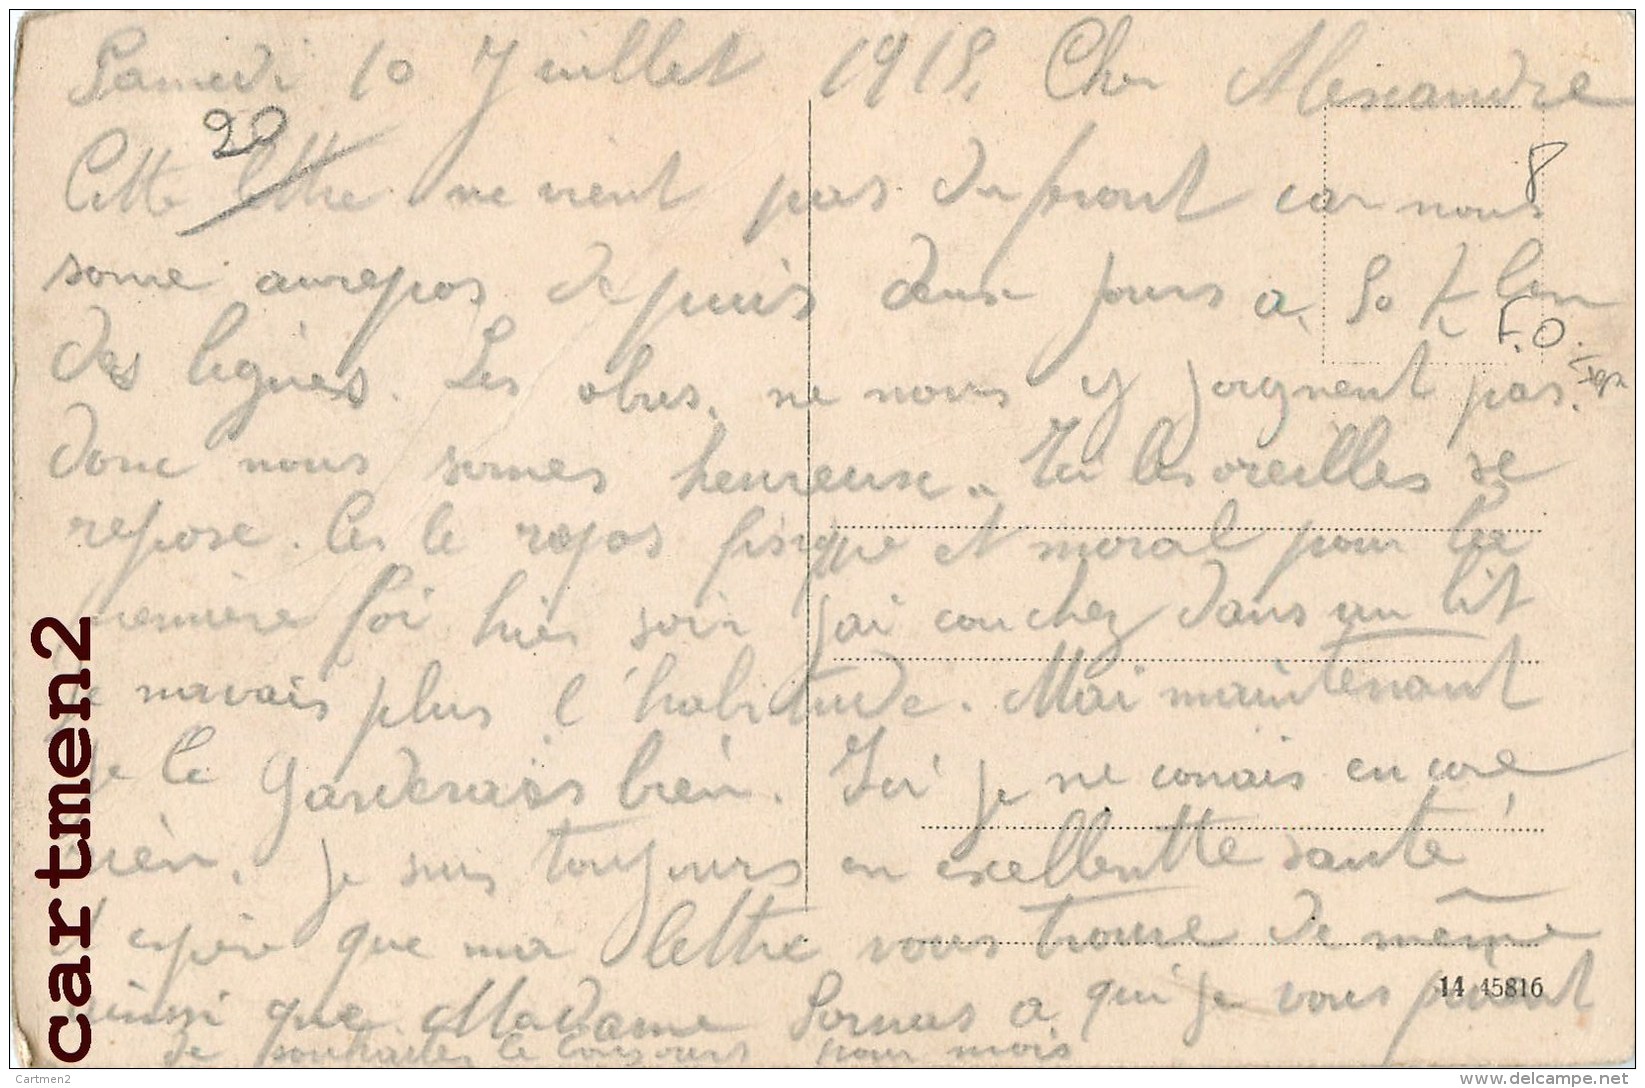 Samedi 10 Juillet 1915, Cher Alexandre
20
Cette lettre ne vient pas du front car nous
8
some aurepos depuis deux jours a. 50 K
F.O.
des lignes. Les obus, ne nous y joignent pas.
donc nous somes heureuse. Ici les oreilles se
repose. Ces le repos fisique et moral pour la
première foi hier soir j'ai couchez dans un lit
je navais plus l'habitude. Mai maintenant
je le garderais bien. Ici je ne conais encore
rien. je suis toujours en excellentte santé
J'espère que ma lettre vous trouve de même
ainsi que Madame Sornas a qui je vous
de souhaiter le bonjours pour mois
14 45816
cartmen2
Cartmen2
delcampe.net